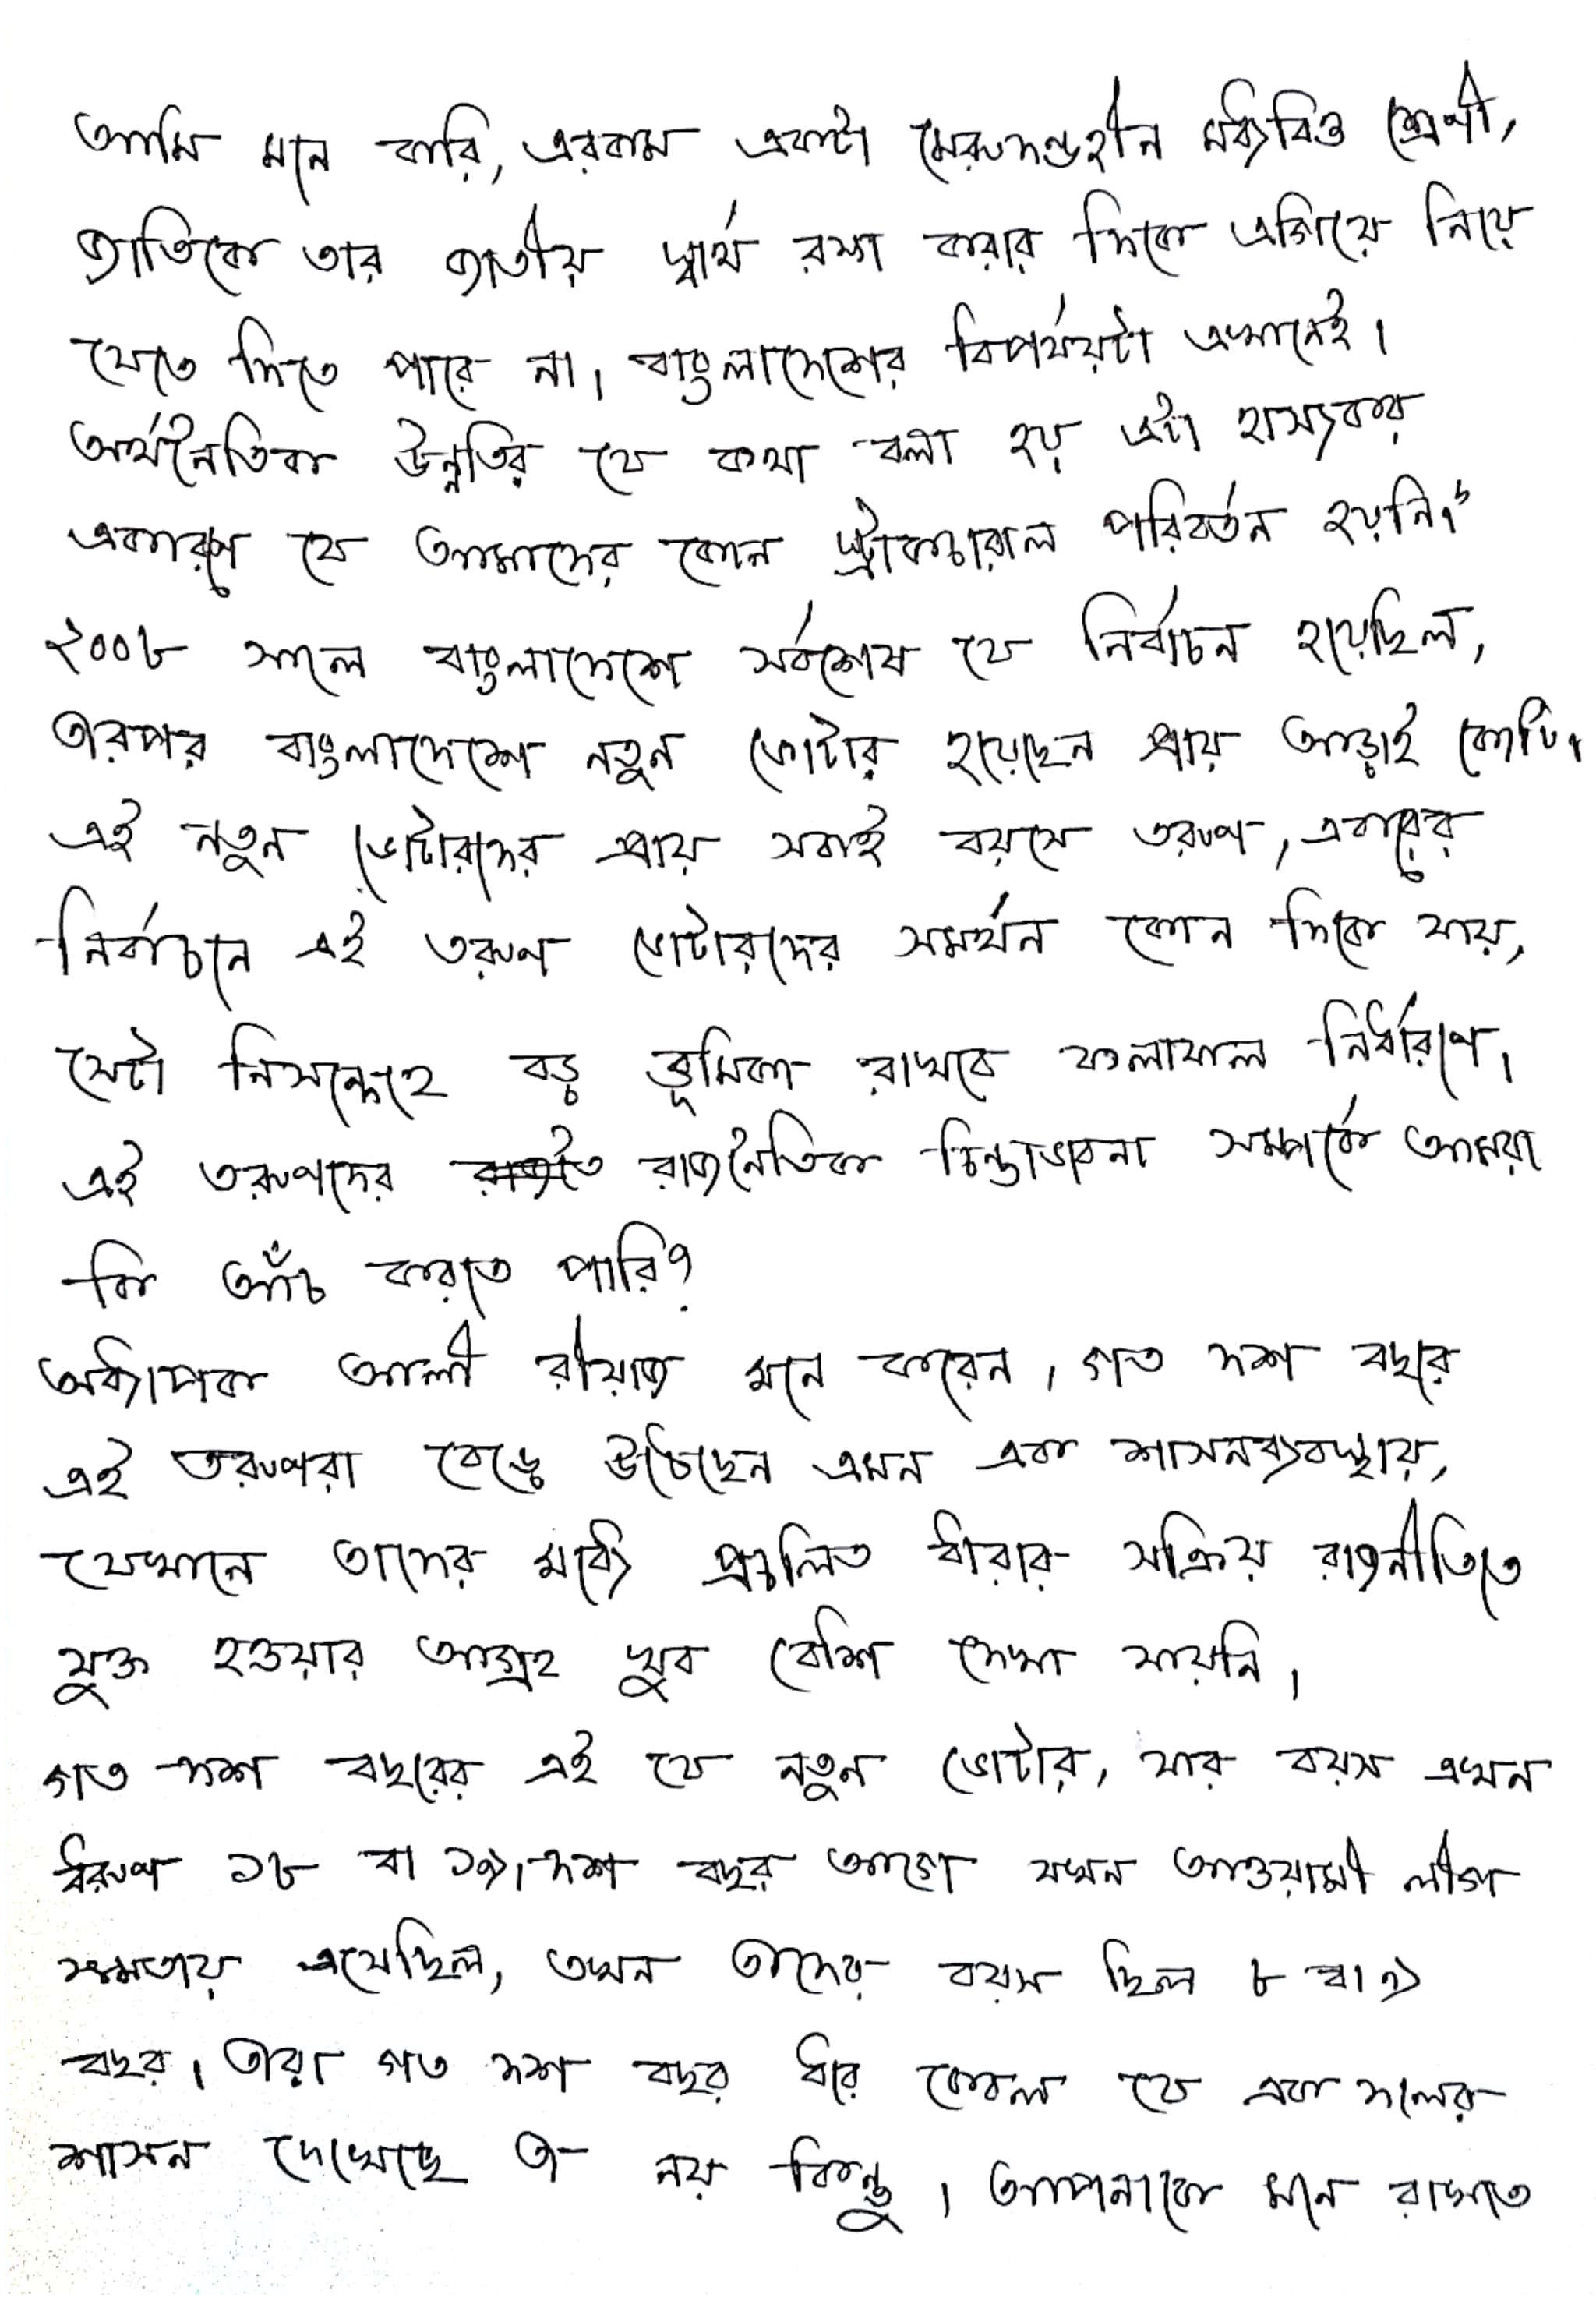 আমি মনে করি, এরকম একটা মেরুদন্ডহীন মধ্যবিত্ত শ্রেণী,
জাতিকে তার জাতীয় স্বার্থ রক্ষা করার দিকে এগিয়ে নিয়ে
যেতে দিতে পারে না। বাংলাদেশের বিপর্যয়টা এখানেই।
অর্থনৈতিক উন্নতির যে কথা বলা হয় এটা হাস্যকর
একারণে যে আমাদের কোন স্ট্রাকচারাল পরিবর্তন হয়নি।"
২০০৮ সালে বাংলাদেশে সর্বশেষ যে নির্বাচন হয়েছিল,
তারপর বাংলাদেশে নতুন ভোটার হয়েছেন প্রায় আড়াই কোটি।
এই নতুন ভোটারদের প্রায় সবাই বয়সে তরুণ, এবারের
নির্বাচনে এই তরুণ ভোটারদের সমর্থন কোন দিকে যায়,
সেটা নিসন্দেহে বড় ভূমিকা রাখবে ফলাফল নির্ধারণে।
এই তরুণদের রাজনৈতিক চিন্তাভাবনা সম্পর্কে আমরা
কি আঁচ করতে পারি?
অধ্যাপক আলী রীয়াজ মনে করেন, গত দশ বছরে
এই তরুণরা বেড়ে উঠেছেন এমন এক শাসনব্যবস্থায়,
যেখানে তাদের মধ্যে প্রচলিত ধারার সক্রিয় রাজনীতিতে
যুক্ত হওয়ার আগ্রহ খুব বেশি দেখা যায়নি।
গত দশ বছরের এই যে নতুন ভোটার, যার বয়স এখন
ধরুণ ১৮ বা ১৯, দশ বছর আগে যখন আওয়ামী লীগ
ক্ষমতায় এসেছিল, তখন তাদের বয়স ছিল ৮ বা ৯
বছর। তারা গত দশ বছর ধরে কেবল যে এক দলের
শাসন দেখেছে তা নয় কিন্তু। আপনাকে মনে রাখতে